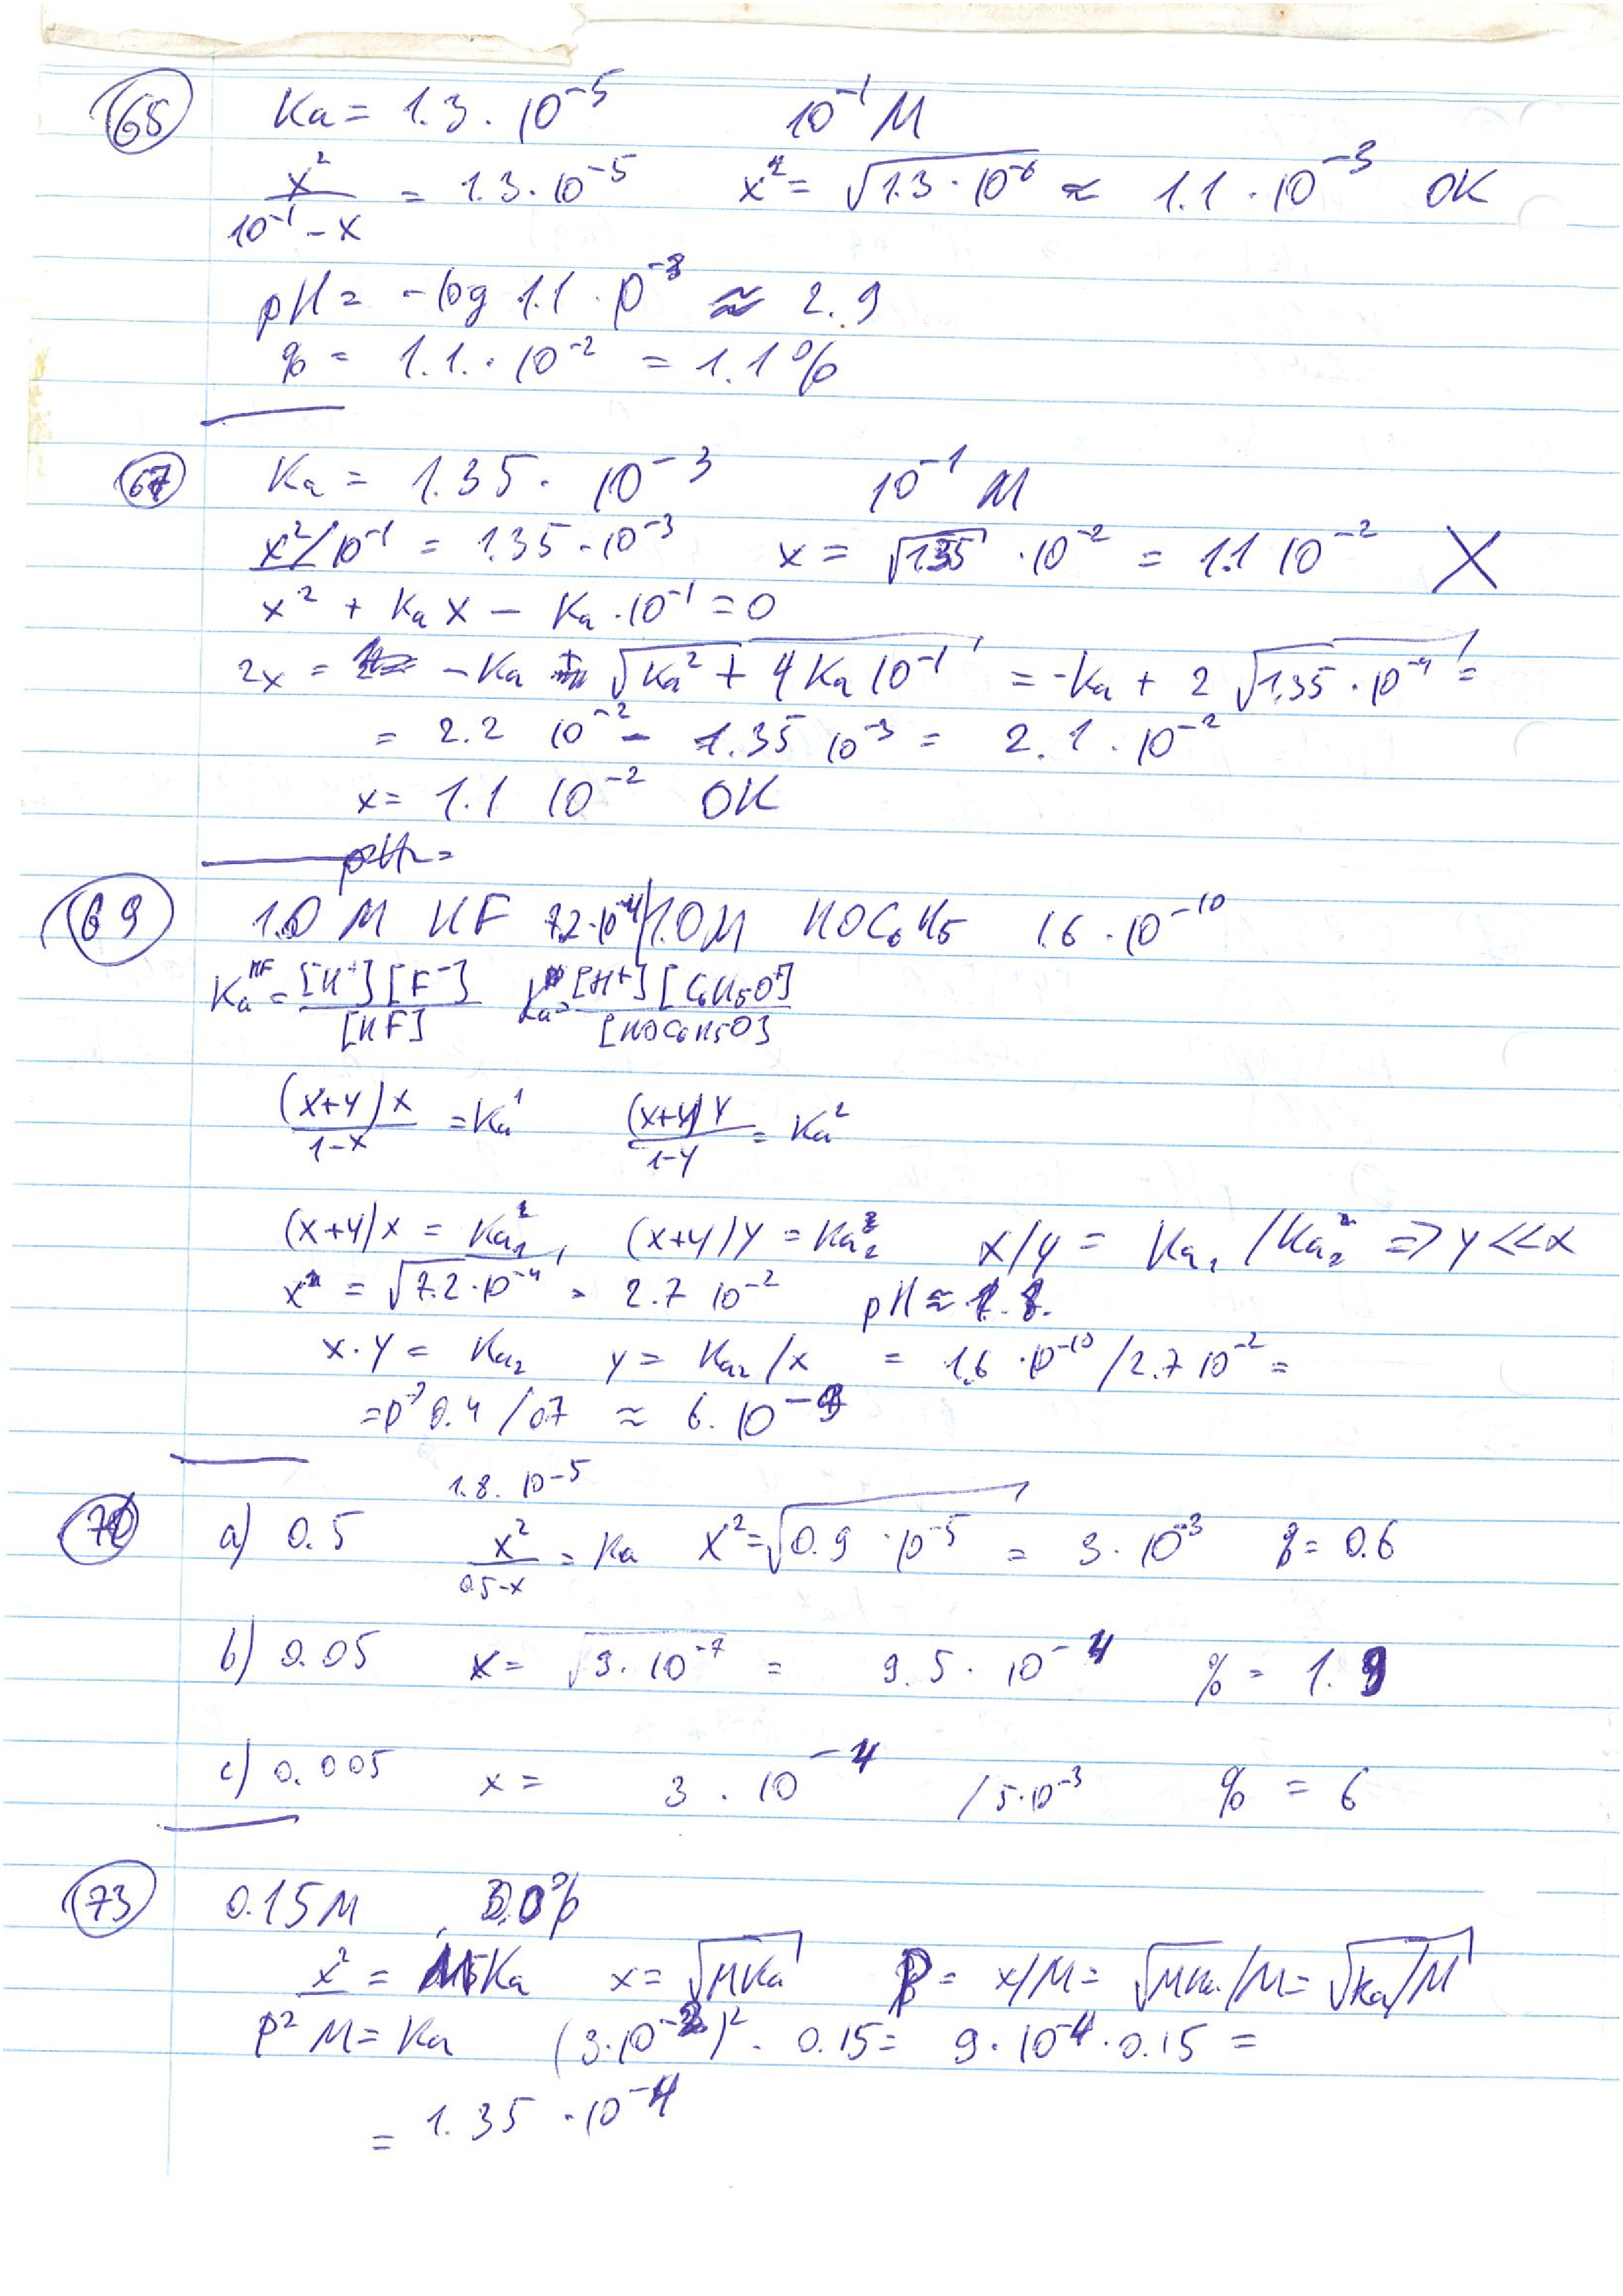 65 Ka = 1.3 · 10⁻⁵ 10⁻¹ M
x² / (10⁻¹ - x) = 1.3 · 10⁻⁵ x² = √(1.3 · 10⁻⁶) ≈ 1.1 · 10⁻³ OK
pH = - log 1.1 · 10⁻³ ≈ 2.9
% = 1.1 · 10⁻² = 1.1%
67 Ka = 1.35 · 10⁻³ 10⁻¹ M
x²/10⁻¹ = 1.35 · 10⁻³ x = √1.35 · 10⁻² = 1.1 10⁻² X
x² + Ka x - Ka · 10⁻¹ = 0
2x = - Ka + √(Ka² + 4 Ka 10⁻¹) = -Ka + 2 √(1.35 · 10⁻⁴) =
= 2.2 10⁻² - 1.35 10⁻³ = 2.1 · 10⁻²
x = 1.1 10⁻² OK
pH =
69 1.0 M HF 7.2 · 10⁻⁴ / 1.0 M HOC₆H₅ 1.6 · 10⁻¹⁰
Ka^HF = [H⁺][F⁻] / [HF] Ka = [H⁺][C₆H₅O⁻] / [HOC₆H₅O]
(x+y)x / (1-x) = Ka¹ (x+y)y / (1-y) = Ka²
(x+y)x = Ka₁ (x+y)y = Ka₂ x/y = Ka₁ / Ka₂ ⇒ y << x
x = √(7.2 · 10⁻⁴) = 2.7 10⁻² pH ≈
x · y = Ka₂ y = Ka₂ / x = 1.6 · 10⁻¹⁰ / 2.7 10⁻² =
= 10⁻⁷ 0.4 / 0.7 ≈ 6 · 10⁻⁹
1.8 · 10⁻⁵
a) 0.5 x² / (0.5-x) = Ka x² = √(0.9 · 10⁻⁵) = 3 · 10⁻³ % = 0.6
b) 0.05 x = √(9 · 10⁻⁷) = 9.5 · 10⁻⁴ % = 1.9
c) 0.005 x = 3 · 10⁻⁴ / 5 · 10⁻³ % = 6
73 0.15 M 3.0%
x² = M Ka x = √(M Ka) P = x/M = √(M Ka)/M = √(Ka/M)
P² M = Ka (3 · 10⁻²)² · 0.15 = 9 · 10⁻⁴ · 0.15 =
= 1.35 · 10⁻⁴